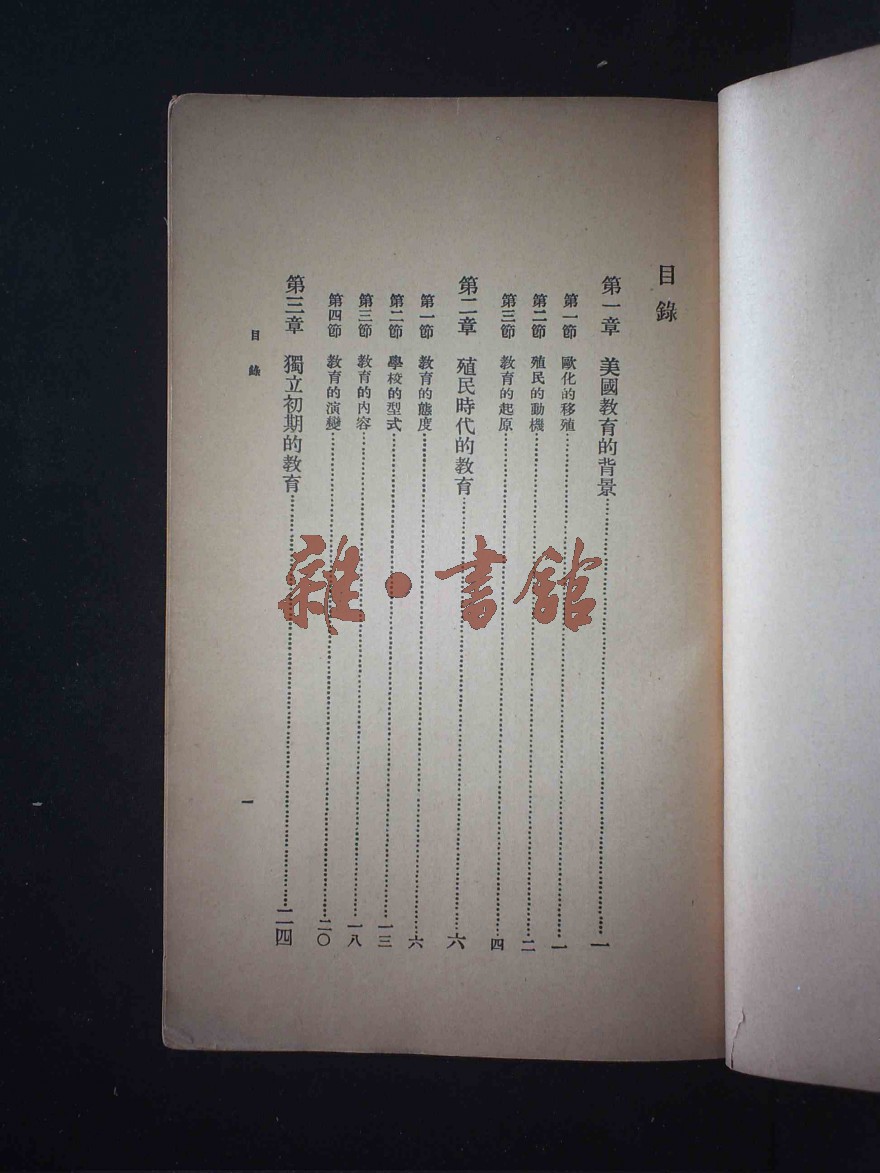 目錄
第一章 美國教育的背景……一
第一節 歐化的移殖……一
第二節 殖民的動機……二
第三節 教育的起原……四
第二章 殖民時代的教育……六
第一節 教育的態度……六
第二節 學校的型式……一三
第三節 教育的內容……一八
第四節 教育的演變……二〇
第三章 獨立初期的教育……二四
目錄 一
雜·書館